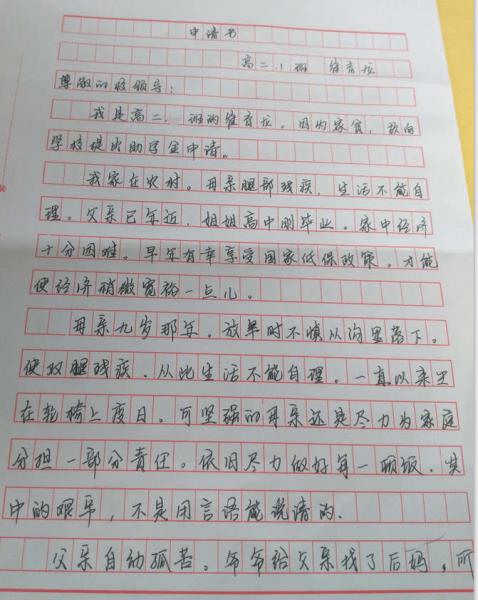 申请书
高二.1班 维育龙
尊敬的校领导：
我是高二、班的维育龙。因为家贫，故向
学校提出助学金申请。
我家在农村。母亲腿部残疾，生活不能自
理。父亲已年近，姐姐高中刚毕业。家中经济
十分困难。早年有幸享受国家低保政策，才能
使经济稍微宽裕一点儿。
母亲九岁那年，放羊时不慎从沟里落下。
使双腿残疾、从此生活不能自理。一直以来坐
在轮椅上度日。可坚强的母亲还是尽力为家庭
分担一部分责任。依旧尽力做好每一顿饭，其
中的艰辛，不是用言语能说清的.
父亲自幼孤苦。爷爷给父亲找了后妈，所